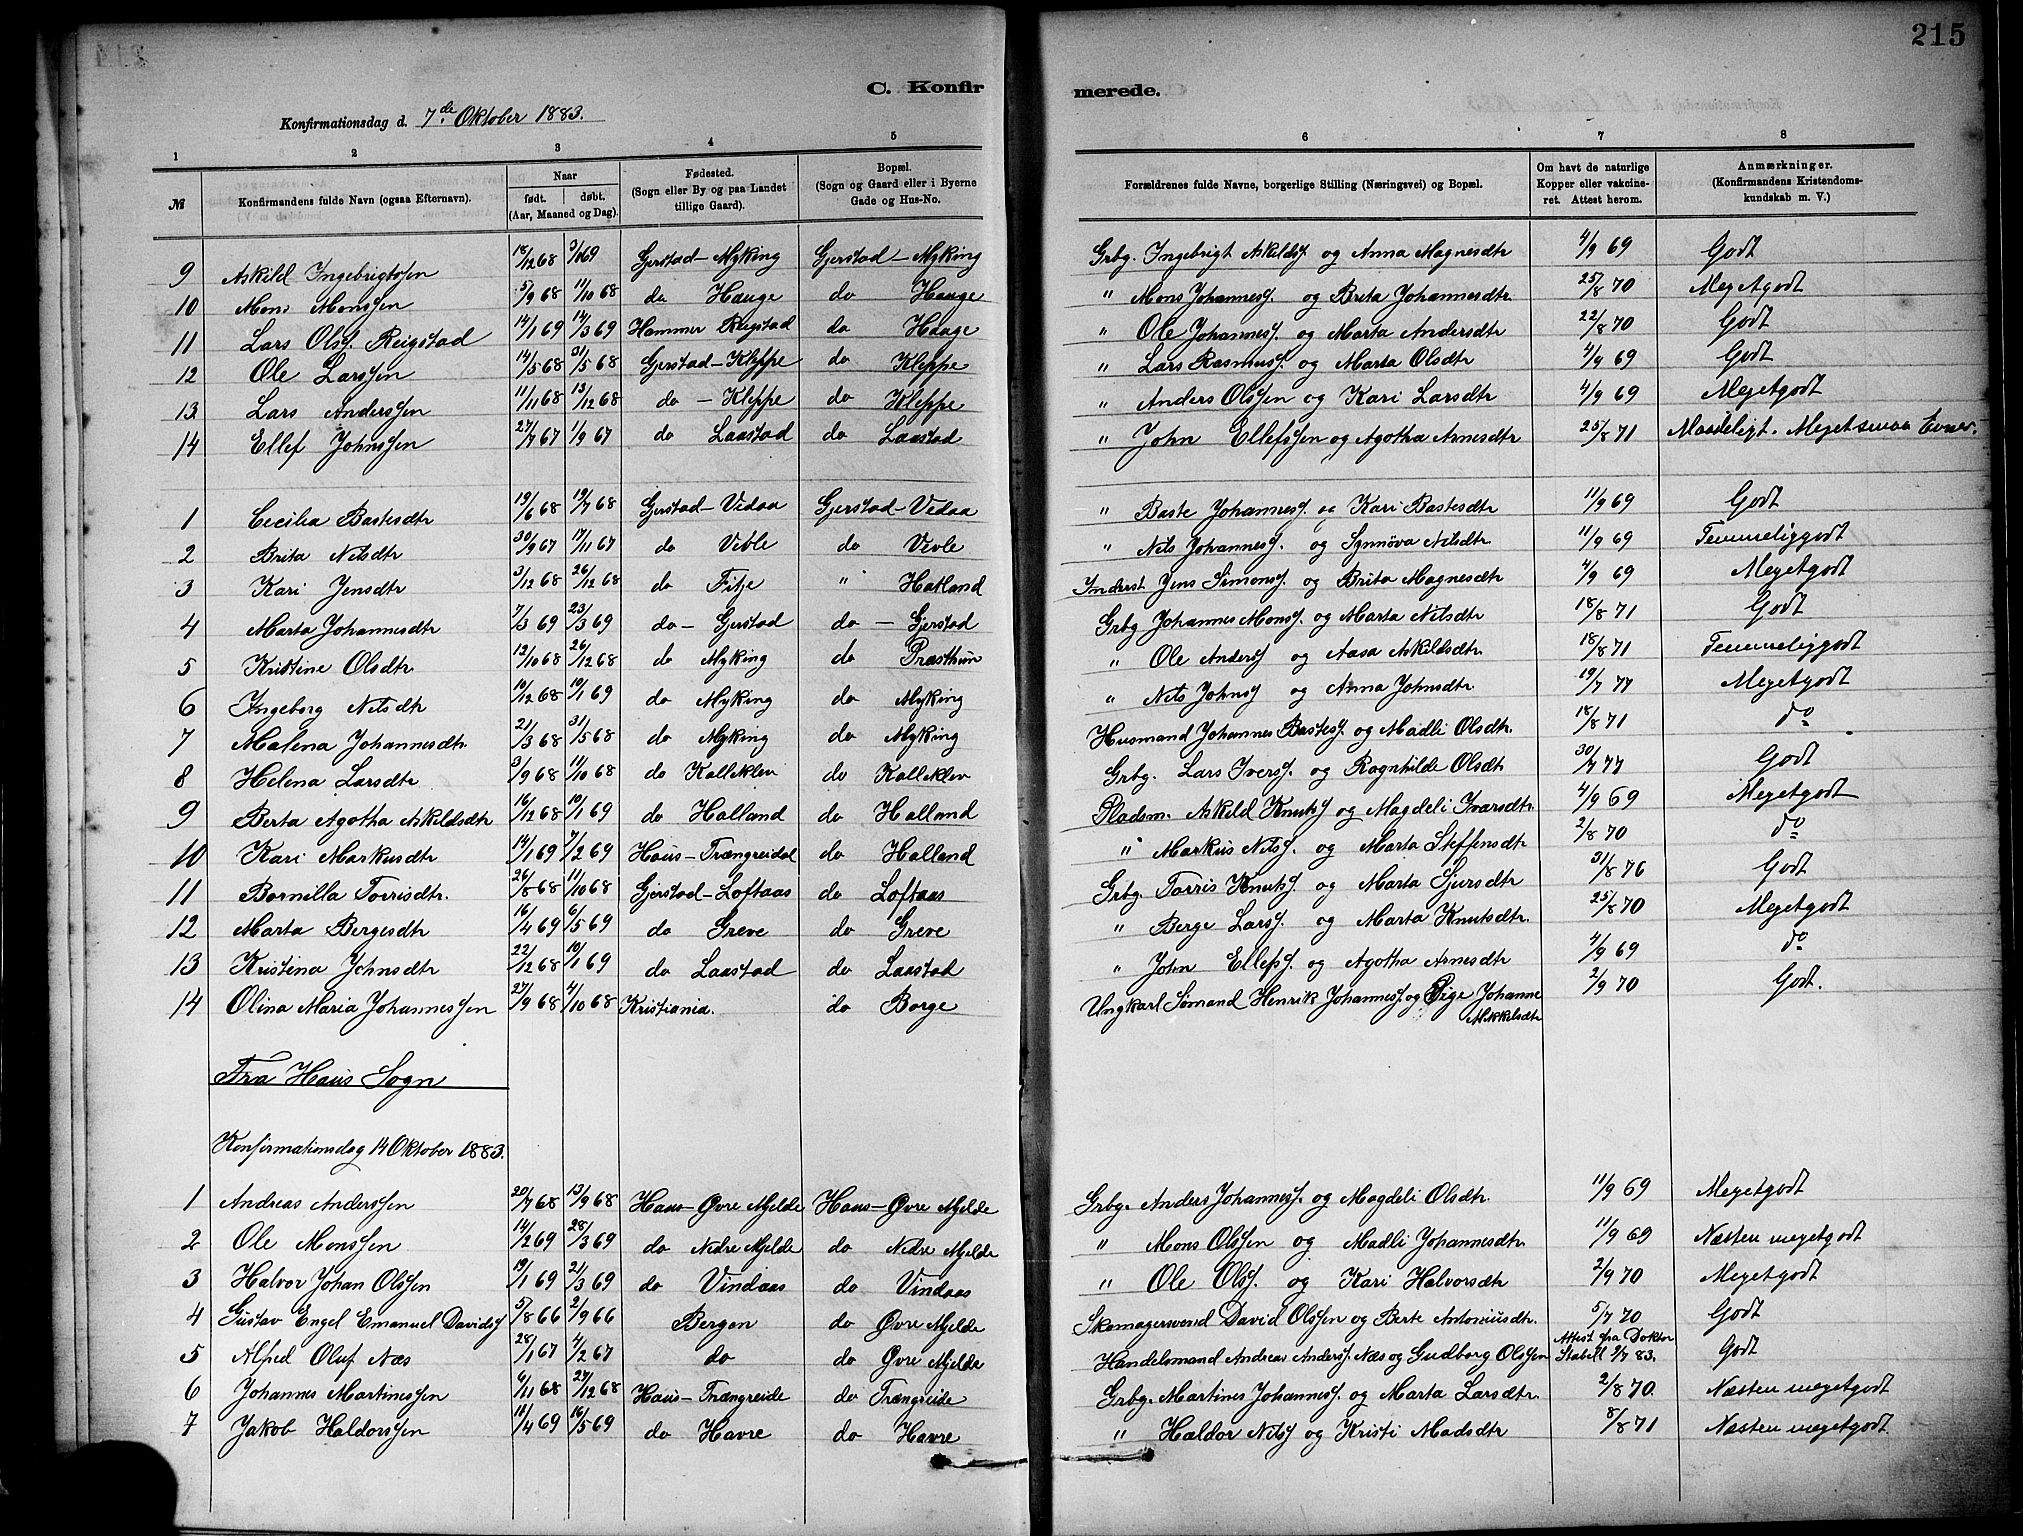 215
C. Konfirmerede.
Konfirmationsdag d. 7de Oktober 1883.
1 2 3 4 5 6 7 8
№ Konfirmandens fulde Navn (ogsaa Efternavn). Naar født. døbt. (Aar, Maaned og Dag). Fødested. (Sogn eller By og paa Landet tillige Gaard). Bopæl. (Sogn og Gaard eller i Byerne Gade og Hus-No. Forældrenes fulde Navne, borgerlige Stilling (Næringsvei) og Bopæl. Om havt de naturlige Kopper eller vakcineret. Attest herom. Anmærkninger. (Konfirmandens Kristendomskundskab m. V.)
9 Askild Ingebrigtssen 18/12 68 3/1 69 Gjerstad - Myking Gjerstad - Myking Grbg. Ingebrigt Askilds. og Anna Magnesdtr 4/9 69 Godt
10 Mons Monssen 5/9 68 11/10 68 do Hauge do Hauge " Mons Johanness. og Brita Johannesdtr. 25/8 70 Megetgodt
11 Lars Ols. Reigstad 14/1 69 14/3 69 Hammer Reigstad do Hauge " Ole Johanness. og Marta Andersdtr 22/8 70 Godt
12 Ole Larssen 14/5 68 31/5 68 Gjerstad - Kleppe do Kleppe " Lars Rasmuss. og Marta Olsdtr 4/9 69 Godt
13 Lars Anderssen 11/11 68 13/12 68 do - Kleppe do Kleppe " Anders Olssen og Kari Larsdtr 4/9 69 Megetgodt
14 Ellef Johnssen 27/7 67 1/9 67 do Laastad do Laastad " John Ellefssen og Agotha Arnesdtr 25/8 71 Maadeligt. Meget smaa Evner.
1 Cecilia Bastesdtr 19/6 68 19/7 68 Gjerstad - Vedaa Gjerstad - Vedaa " Baste Johanness. og Kari Bastesdtr 11/9 69 Godt
2 Brita Nilsdtr 30/9 67 17/11 67 do Vevle do Vevle " Nils Johanness. og Synnöva Nilsdtr. 11/9 69 Temmeliggodt
3 Kari Jensdtr 3/12 68 26/12 68 do Fitje " Hatland Inderst Jens Simons. og Brita Magnesdtr 4/9 69 Megetgodt
4 Marta Johannesdtr 7/3 69 23/3 69 do - Gjerstad do - Gjerstad Grbg Johannes Mons. og Marta Nilsdtr 18/8 71 Godt
5 Kristine Olsdtr 12/10 68 26/12 68 do Myking do Præsthun " Ole Anders. og Aasa Askildsdtr. 18/8 71 Temmeliggodt
6 Ingeborg Nilsdtr 10/12 68 10/1 69 do Myking do Myking " Nils Johns. og Anna Johnsdtr 19/7 77 Megetgodt
7 Malena Johannesdtr. 21/3 68 31/5 68 do Myking do Myking Husmand Johannes Bastes. og Madli Olsdtr. 18/8 71 do
8 Helena Larsdtr 3/9 68 11/10 68 do Kalleklev do Kalleklev Grbg. Lars Ivers. og Ragnhilde Olsdtr 30/7 77 Godt
9 Berta Agotha Askildsdtr 16/12 68 10/1 69 do Halland do Halland Pladsm. Askild Knuts. og Magdeli Ivarsdtr. 4/9 69 Megetgodt
10 Kari Markusdtr 14/1 69 7/2 69 Haus - Trængreidal do Halland " Markus Nils. og Marta Steffensdtr 2/8 70 do
11 Bornilla Torrisdtr. 26/8 68 11/10 68 Gjerstad - Loftaas do Loftaas Grbg. Torris Knuts. og Marta Sjursdtr 31/8 76 Godt
12 Marta Bergesdtr 16/4 69 6/5 69 do Greve do Greve " Berge Lars. og Marta Knutsdtr. 25/8 70 Megetgodt
13 Kristina Johnsdtr 22/12 68 10/1 69 do Laastad do Laastad " John Ellefs. og Agotha Arnesdtr 4/9 69 do
14 Olina Maria Johannessen 27/9 68 4/10 68 Kristiania. do Borge Ungkarl Sømand Henrik Johanness. og Pige Johanne Mikkelsdtr 2/9 70 Godt.
Fra Haus Sogn
Konfirmationsdag 14 Oktober 1883.
1 Andreas Anderssen 20/7 68 13/9 68 Haus - Øvre Mjelde Haus - Øvre Mjelde Grbg. Anders Johanness. og Magdeli Olsdtr. 11/9 69 Megetgodt
2 Ole Monssen 14/2 69 28/3 69 do Nedre Mjelde do Nedre Mjelde " Mons Olssen og Madli Johannesdtr. 11/9 69 Næsten megetgodt
3 Halvor Johan Olssen 19/1 69 21/3 69 do Vindaas do Vindaas " Ole Ols. og Kari Halvorsdtr 2/9 70 Megetgodt
4 Gustav Engel Emanuel Davids. 5/8 66 2/9 66 Bergen do Øvre Mjelde Skomagersvend David Olssen og Berte Antoniusdtr. 5/7 70 Godt
5 Alfred Oluf Næs 28/1 67 4/2 67 do do Øvre Mjelde Handelsmand Andreas Anders. Næs og Gudborg Olssen Attest fra Doktor Stabell 2/7 83. Godt
6 Johannes Martinessen 6/11 68 27/12 68 Haus - Trængreide do Trængreide Grbg. Martines Johanness. og Marta Larsdtr. 2/8 70. Næsten megetgodt
7 Jakob Haldorssen 11/4 69 16/5 69 do Havre do Havre " Haldor Nils. og Kristi Madsdtr 8/8 71 Næsten megetgodt.